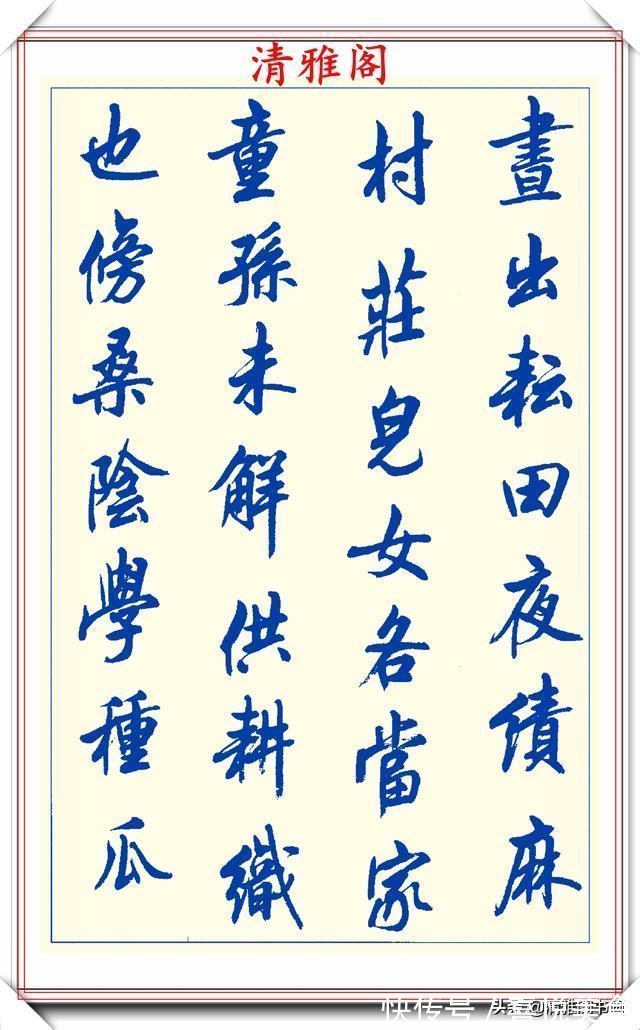 清雅阁
晝出耘田夜績麻
村莊兒女各當家
童孫未解供耕織
也傍桑陰學種瓜